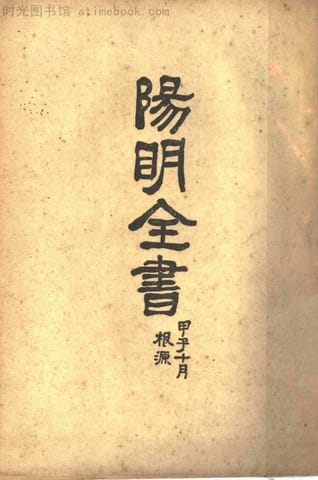 时光图书馆 atimebook.com
陽明全書
甲子十月
根源